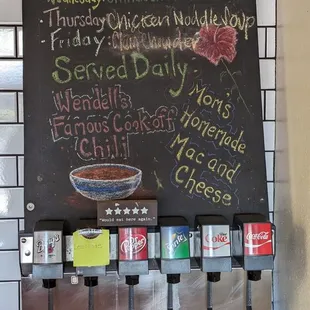 Thursday Chicken Noodle Soup
Friday Clam Chowder
Served Daily
Wendell's
Famous Cook off
Chili
Mom's
Homemade
Mac and
Cheese
"Would eat here again."
Dr Pepper
Coke
Coca-Cola